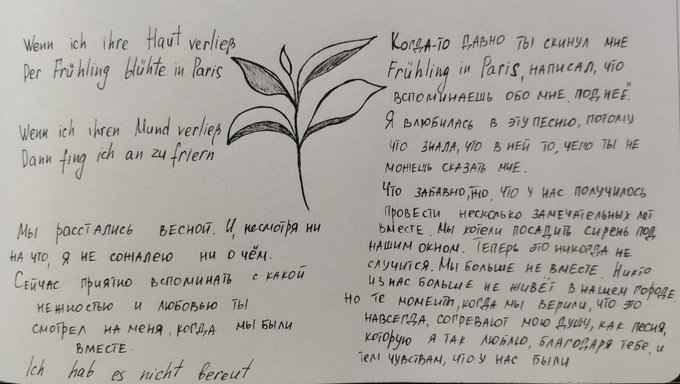 Wenn ich ihre Haut verließ
Der Frühling blühte in Paris
Wenn ich ihren Mund verließ
Dann fing ich an zu friern
Мы расстались весной. И, несмотря ни
на что, я не сожалею ни о чём.
Сейчас приятно вспоминать с какой
нежностью и любовью ты
смотрел на меня, когда мы были
вместе.
Ich hab es nicht bereut
Когда-то давно ты скинул мне
Frühling in Paris, написал, что
вспоминаешь обо мне под неё.
Я влюбилась в эту песню, потому
что знала, что в ней то, чего ты не
можешь сказать мне.
Что забавно, то, что у нас получилось
провести несколько замечательных лет
вместе. Мы хотели посадить сирень под
нашим окном. Теперь это никогда не
случится. Мы больше не вместе. Никто
из нас больше не живёт в нашем городе.
Но те моменты, когда мы верили, что это
навсегда, согревают мою душу, как песня,
которую я так люблю, благодаря тебе, и
тем чувствам, что у нас были